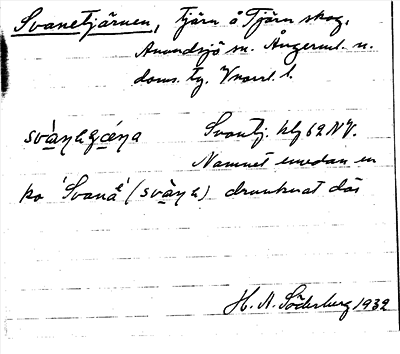 Svanetjärnen, tjärn å Tjärn skog,
Anundsjö sn. Ångerml. n.
doms. tg. Vnorrl. l.
Svantj. blg 62 NV.
Namnet emedan en
ko 'Svana' (svàna) drunknat där
H. A. Söderberg 1932